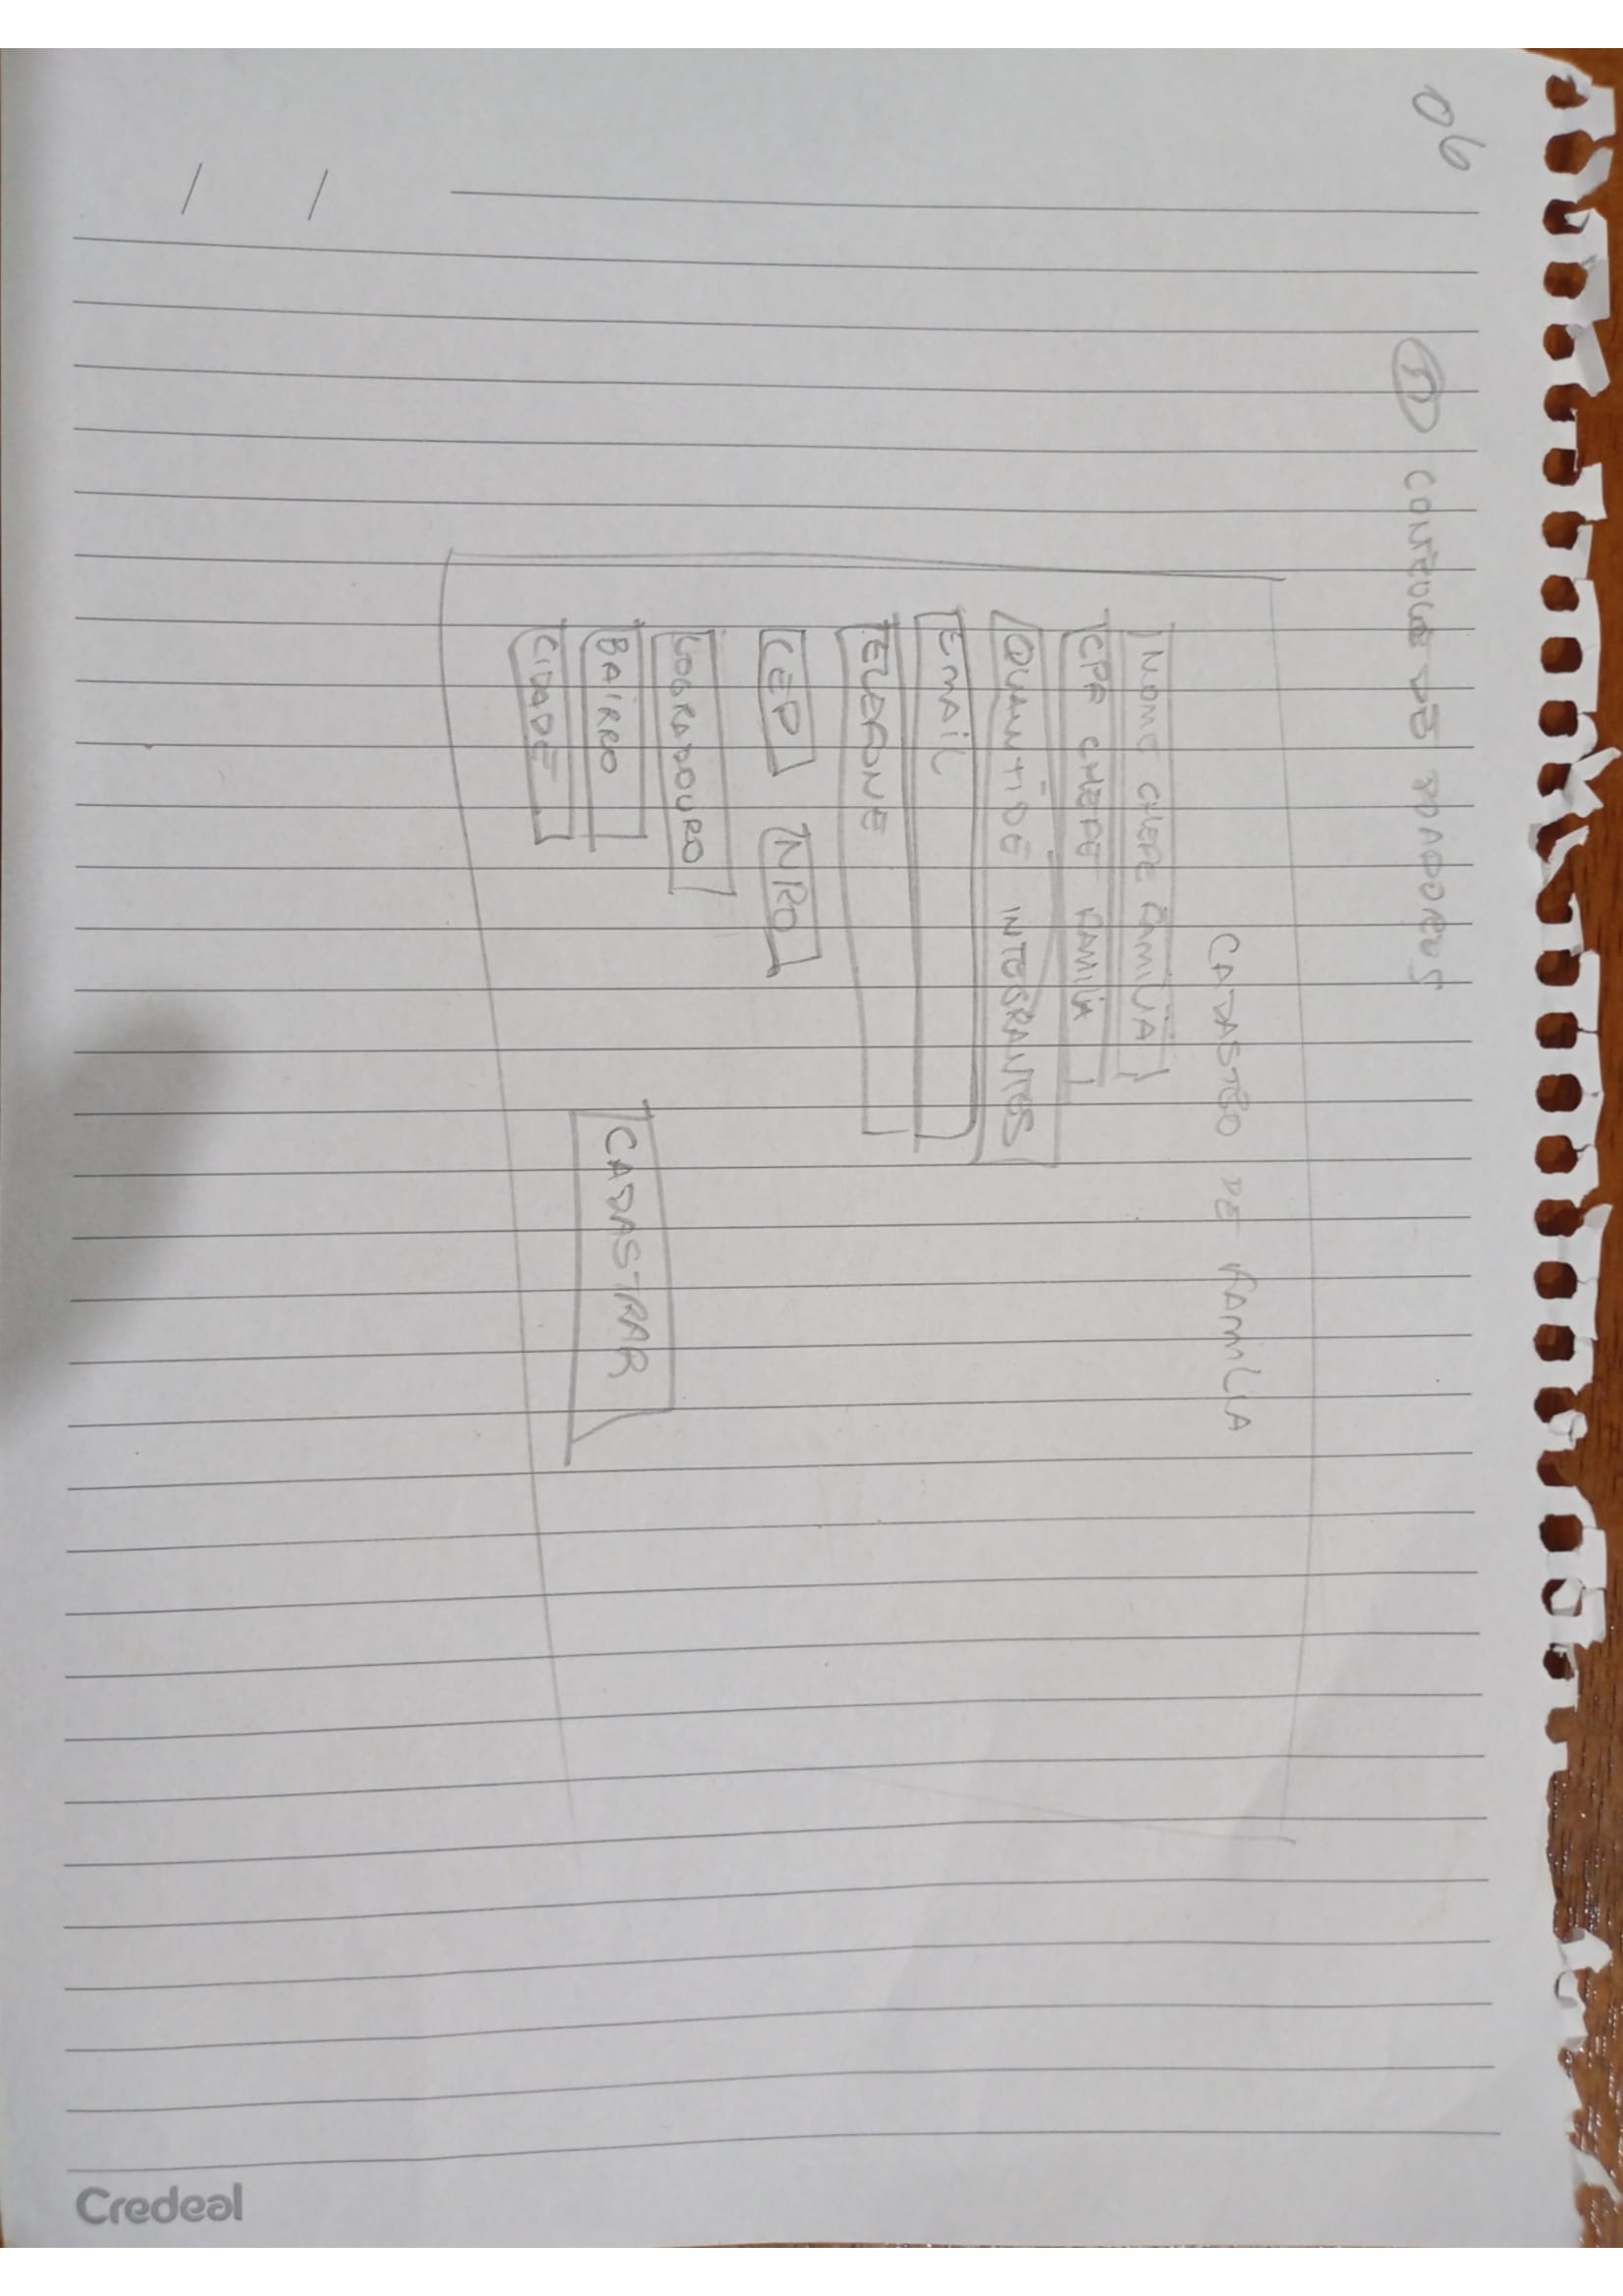 06
CONTROLE DE DOADORES
CADASTRO DE FAMILIA
NOME CHEFE FAMILIA
CPF CHEFE FAMILIA
QUANTIDE INTEGRANTES
EMAIL
TELEFONE
CEP NRO
LOGRADOURO
BAIRRO
CIDADE
CADASTRAR
/ /
Credeal